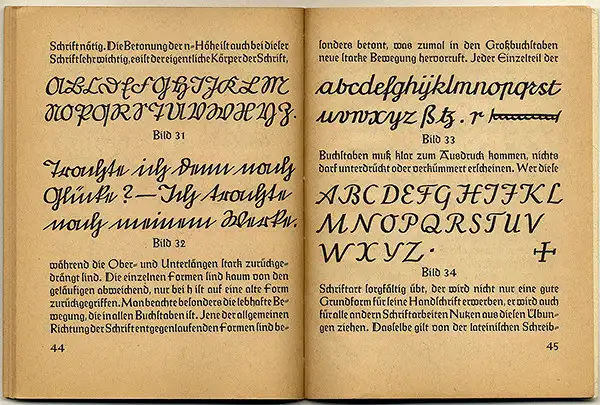 Schrift nötig. Die Betonung der n-Höhe ist auch bei dieser
Schrift sehr wichtig, es ist der eigentliche Körper der Schrift,
ABCDEFGHIJKLM
NOPQRSTUVWXYZ.
Bild 31
Trachte ich denn nach
Glücke? — Ich trachte
nach meinem Werke.
Bild 32
während die Ober- und Unterlängen stark zurückge-
drängt sind. Die einzelnen Formen sind kaum von den
geläufigen abweichend, nur bei h ist auf eine alte Form
zurückgegriffen. Man beachte besonders die lebhafte Be-
wegung, die in allen Buchstaben ist. Jene der allgemeinen
Richtung der Schrift entgegenlaufenden Formen sind be-
44
sonders betont, was zumal in den Großbuchstaben
neue starke Bewegung hervorruft. Jeder Einzelteil der
abcdefghijklmnopqrst
uvwxyz ß tz . r
Bild 33
Buchstaben muß klar zum Ausdruck kommen, nichts
darf unterdrückt oder verkümmert erscheinen. Wer diese
ABCDEFGHIJKL
MNOPQRSTUV
WXYZ ·
Bild 34
Schriftart sorgfältig übt, der wird nicht nur eine gute
Grundform für seine Handschrift erwerben, er wird auch
für alle andern Schriftarbeiten Nutzen aus diesen Übun-
gen ziehen. Dasselbe gilt von der lateinischen Schreib-
45